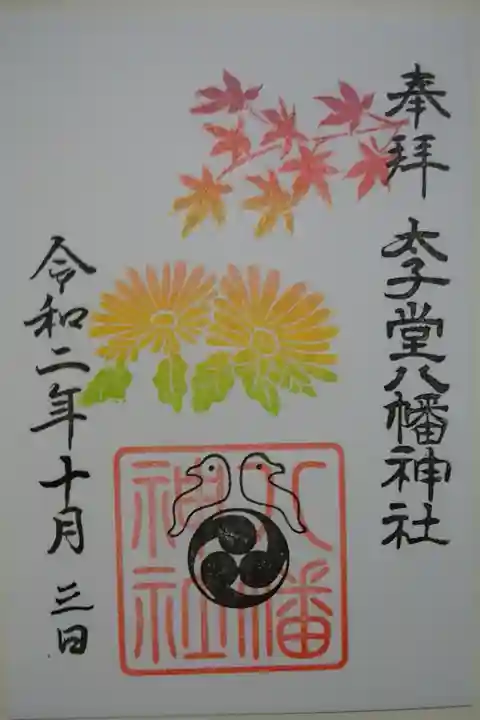 奉拝
太子堂八幡神社
八幡
神社
令和二年十月三日